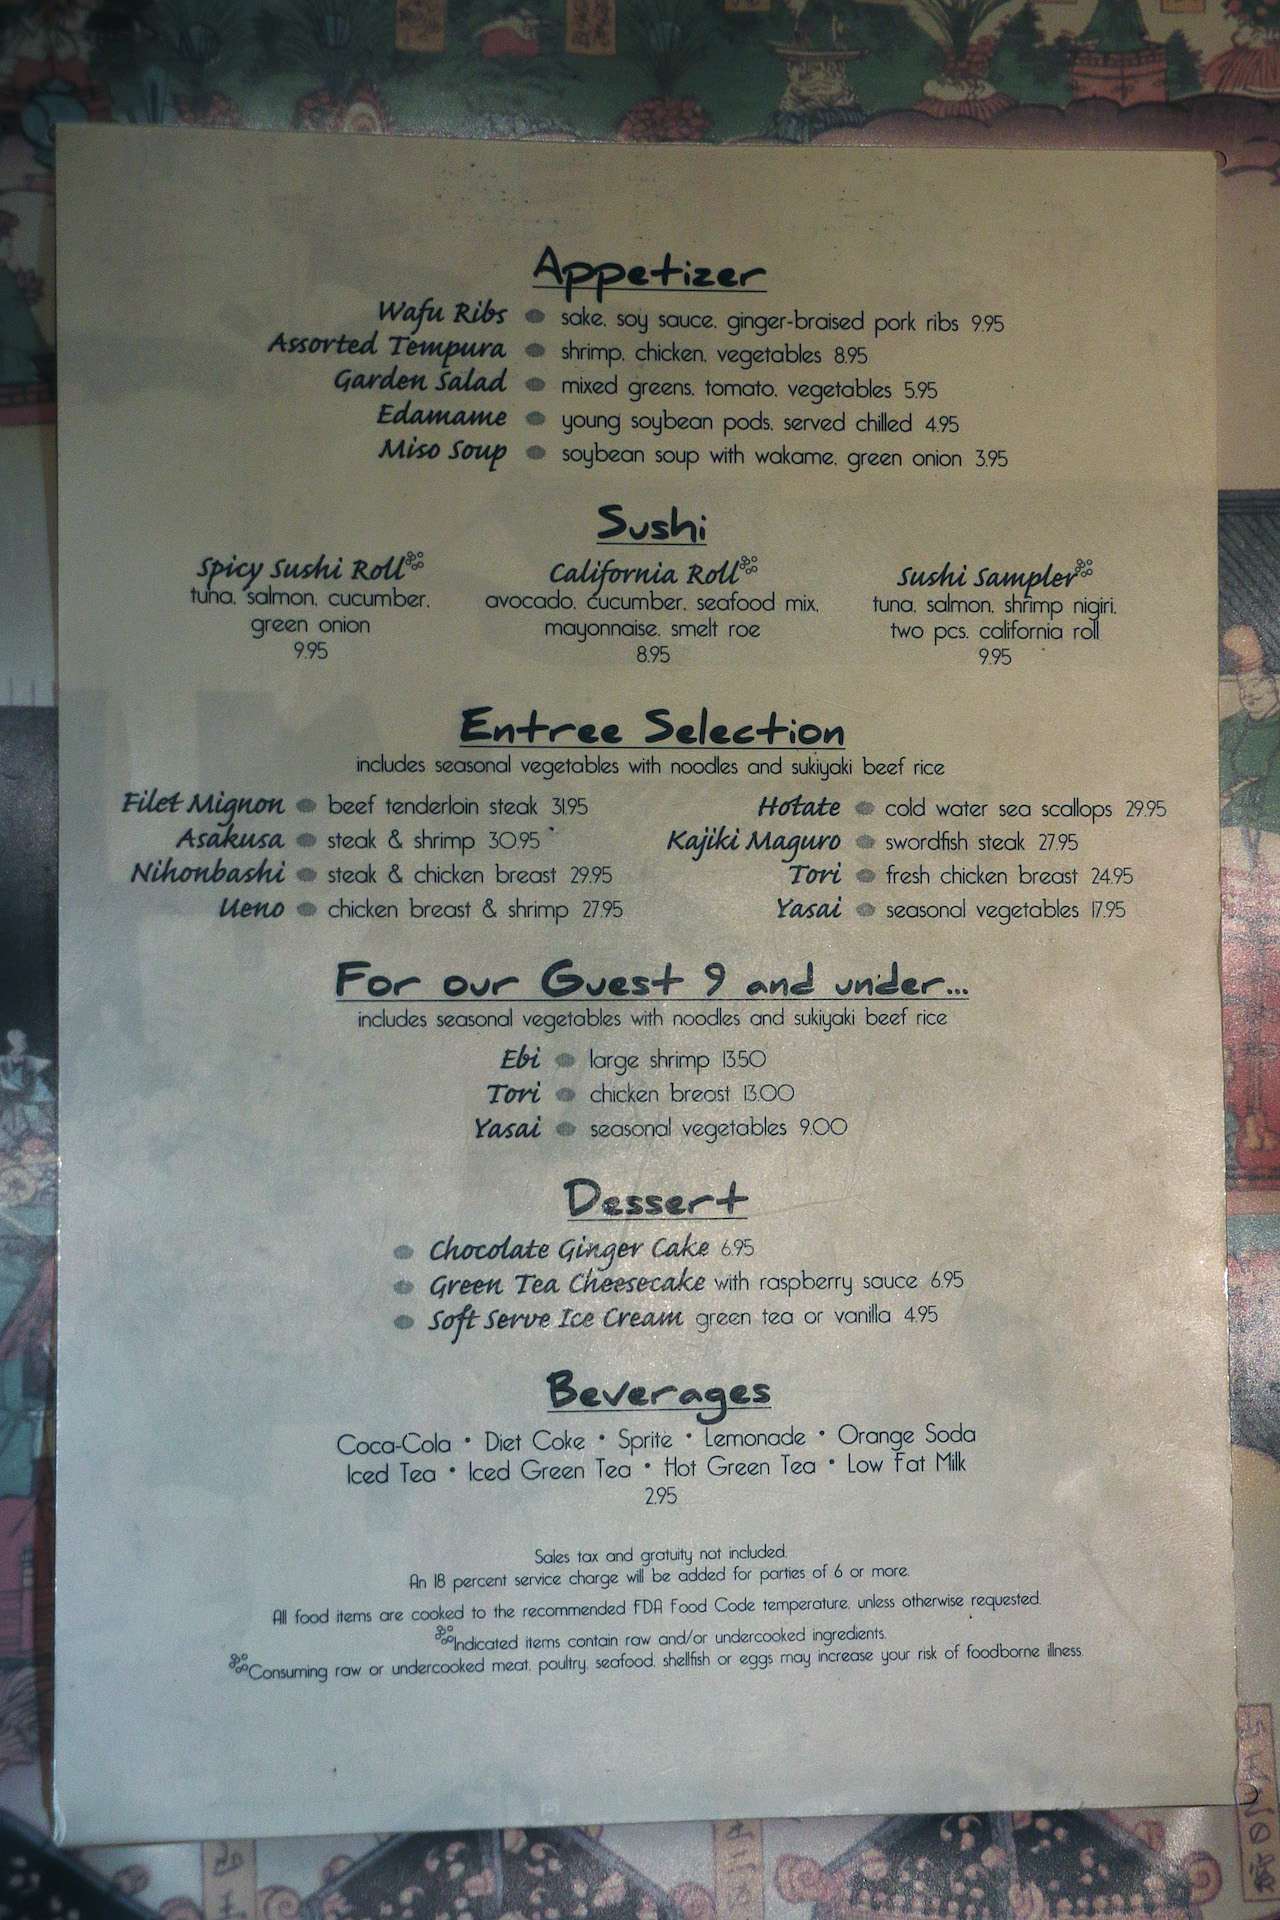 Appetizer
Wafu Ribs sake, soy sauce, ginger-braised pork ribs 9.95
Assorted Tempura shrimp, chicken, vegetables 8.95
Garden Salad mixed greens, tomato, vegetables 5.95
Edamame young soybean pods, served chilled 4.95
Miso Soup soybean soup with wakame, green onion 3.95
Sushi
Spicy Sushi Roll
tuna, salmon, cucumber,
green onion
9.95
California Roll
avocado, cucumber, seafood mix,
mayonnaise, smelt roe
8.95
Sushi Sampler
tuna, salmon, shrimp nigiri,
two pcs. california roll
9.95
Entree Selection
includes seasonal vegetables with noodles and sukiyaki beef rice
Filet Mignon beef tenderloin steak 31.95
Asakusa steak & shrimp 30.95
Nihonbashi steak & chicken breast 29.95
Ueno chicken breast & shrimp 27.95
Hotate cold water sea scallops 29.95
Kajiki Maguro swordfish steak 27.95
Tori fresh chicken breast 24.95
Yasai seasonal vegetables 17.95
For our Guest 9 and under...
includes seasonal vegetables with noodles and sukiyaki beef rice
Ebi large shrimp 13.50
Tori chicken breast 13.00
Yasai seasonal vegetables 9.00
Dessert
Chocolate Ginger Cake 6.95
Green Tea Cheesecake with raspberry sauce 6.95
Soft Serve Ice Cream green tea or vanilla 4.95
Beverages
Coca-Cola • Diet Coke • Sprite • Lemonade • Orange Soda
Iced Tea • Iced Green Tea • Hot Green Tea • Low Fat Milk
2.95
Sales tax and gratuity not included.
An 18 percent service charge will be added for parties of 6 or more.
All food items are cooked to the recommended FDA Food Code temperature, unless otherwise requested.
Indicated items contain raw and/or undercooked ingredients.
Consuming raw or undercooked meat, poultry, seafood, shellfish or eggs may increase your risk of foodborne illness.